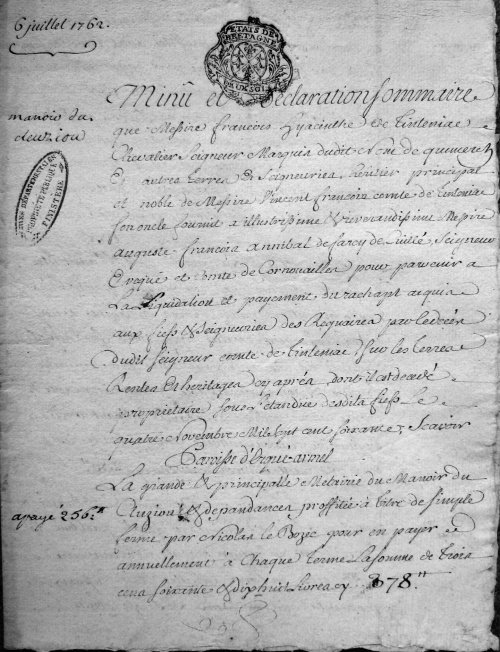 6 juillet 1762.
ETATS DE
BRETAGNE
manoir du
cleuziou
ARCHIVES DEPARTEMENTALES
PROPRIETE PUBLIQUE
FINISTERE
Minû et Declaration sommaire
que Messire françois hyacinthe de tinteniac
Chevalier Seigneur Marquis dudit et de quimerch
& autres terres & Seigneuries, heritier principal
et noble de Messire Vincent françois comte de tinteniac
son oncle fournit a illustrissime & reverendissime Messire
auguste françois annibal de farcy de Cuillé, Seigneur
Eveque et comte de Cornouailles pour parvenir a
La Liquidation et payement du rachapt acquis
aux fiefs & Seigneuries des Reguaires par le decés
dudit seigneur comte de tinteniac sur les terres
Rentes et heritages cy aprés dont il est decedé
proprietaire sous l'etandue desdits fiefs Le
quatre Novembre Mil sept cent soixante; Scavoir
Paroisse d'Ergué-armel
La grande & principalle Metairie du Manoir du
Cluziou & dependances proffitée à titre de simple
ferme par Nicolas le Bozec pour en payer
annuellement à Chaque terme La somme de trois
cens soixante & dix huit Livres cy 378.ᶫᶫ
apayé 256.ᶫᶫ